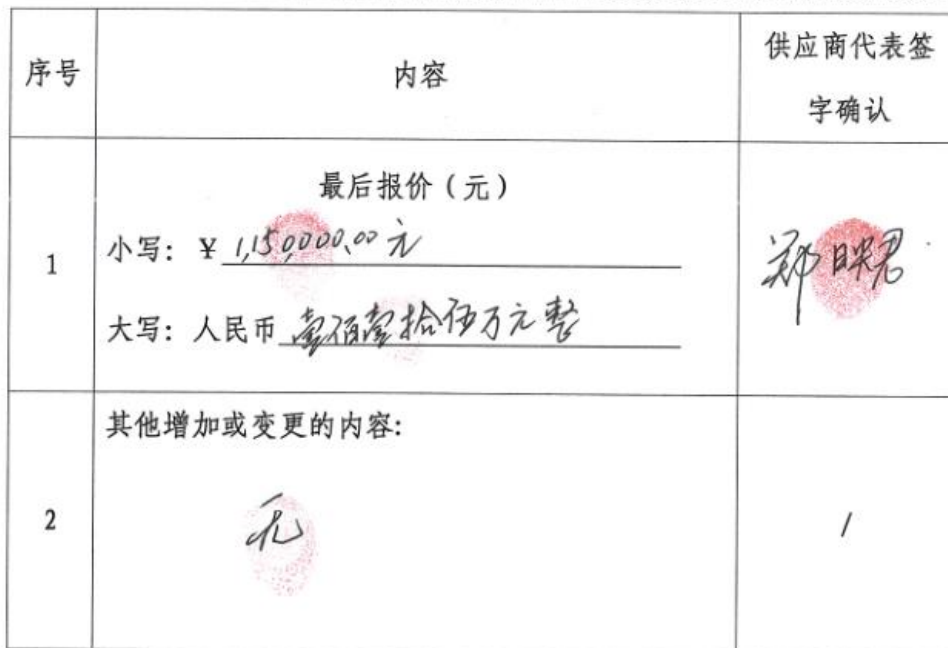 序号
内容
供应商代表签
字确认
1
最后报价（元）
小写：￥ 1,150,000.00 元
大写：人民币 壹佰壹拾伍万元整
郑映君
2
其他增加或变更的内容:
无
/